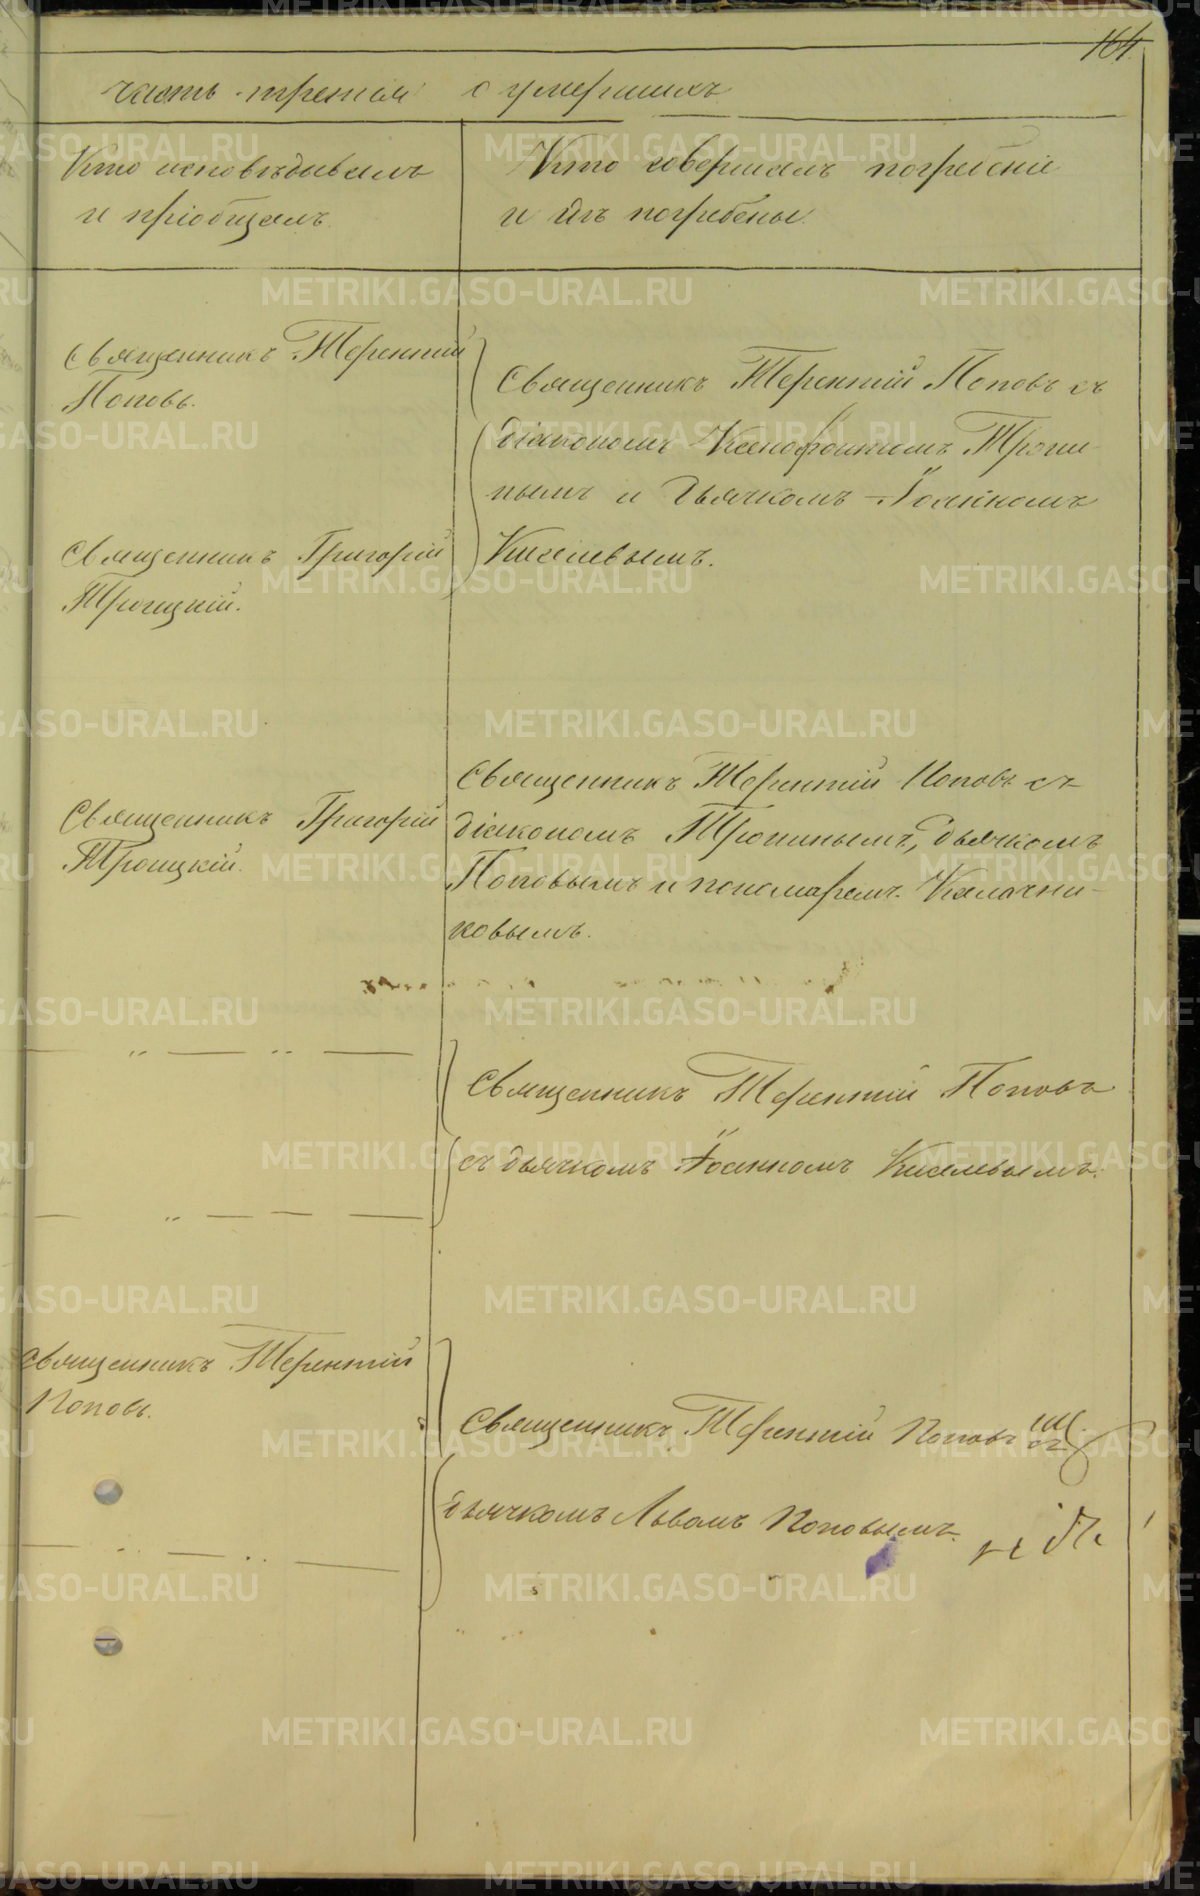 164
часть третія о умершихъ
Кто исповѣдывалъ
и пріобщалъ.
Кто совершалъ погребеніе
и гдѣ погребены.
Священникъ Терентій
Поповъ.
Священникъ Терентій Поповъ съ
діакономъ Ксенофонтомъ Тропи-
нымъ и дьячкомъ Іоанномъ
Киселевымъ.
Священникъ Григорій
Троицкій.
Священникъ Григорій
Троицкій.
Священникъ Терентій Поповъ съ
діакономъ Тропинымъ, дьячкомъ
Поповымъ и пономаремъ Калачни-
ковымъ.
Священникъ Терентій Поповъ
съ дьячкомъ Іоанномъ Киселевымъ.
Священникъ Терентій
Поповъ.
Священникъ Терентій Поповъ съ
дьячкомъ Львомъ Поповымъ.
METRIKI.GASO-URAL.RU